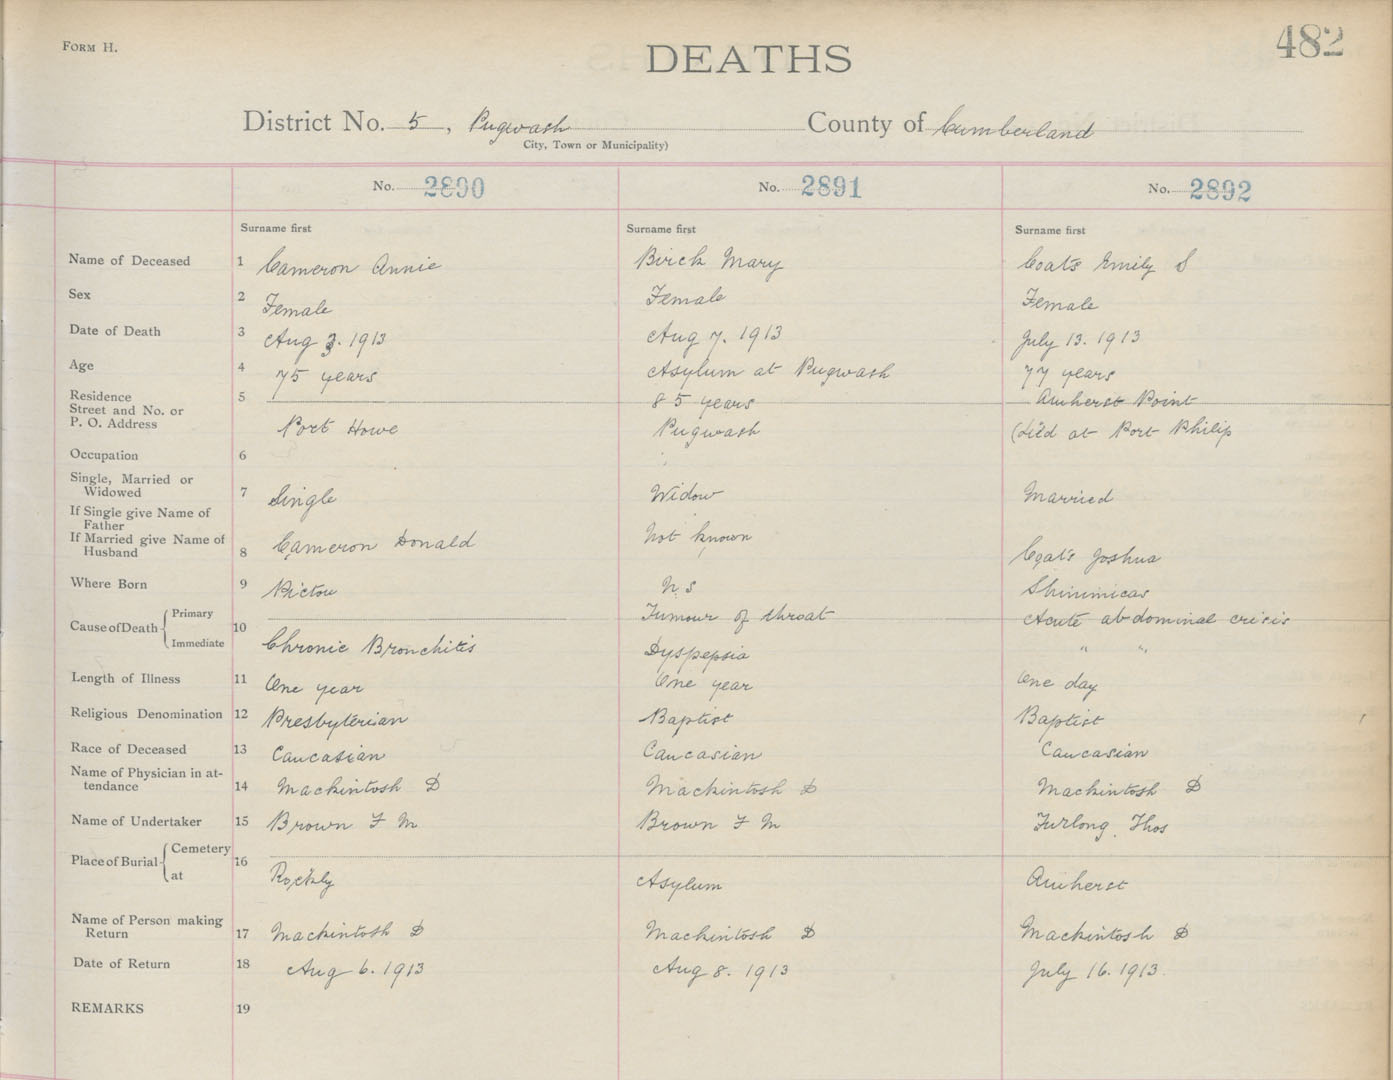 FORM H.
482
DEATHS
District No. 5, Pugwash County of Cumberland
City, Town or Municipality)
No. 2890 No. 2891 No. 2892
Surname first Surname first Surname first
Name of Deceased 1 Cameron Annie Birck Mary Coats Emily S
Sex 2 Female Female Female
Date of Death 3 Aug 3. 1913 Aug 7. 1913 July 13. 1913
Age 4 75 years Asylum at Pugwash 77 years
Residence 5 85 years Amherst Point
Street and No. or
P. O. Address Port Howe Pugwash (died at Port Philip
Occupation 6
Single, Married or
Widowed 7 Single Widow Married
If Single give Name of
Father
If Married give Name of
Husband 8 Cameron Donald Not known Coats Joshua
Where Born 9 Pictou N.S Shinimicas
Cause of Death Primary 10 Tumour of throat Acute abdominal crisis
Immediate Chronic Bronchitis Dyspepsia " "
Length of Illness 11 One year One year One day
Religious Denomination 12 Presbyterian Baptist Baptist
Race of Deceased 13 Caucasian Caucasian Caucasian
Name of Physician in at-
tendance 14 Mackintosh D Mackintosh D Mackintosh D
Name of Undertaker 15 Brown F M Brown F M Furlong Thos
Place of Burial Cemetery 16
at Rockly Asylum Amherst
Name of Person making
Return 17 Mackintosh D Mackintosh D Mackintosh D
Date of Return 18 Aug 6. 1913 Aug 8. 1913 July 16. 1913.
REMARKS 19